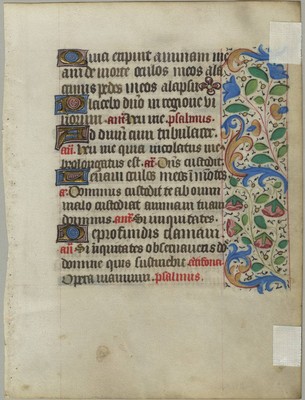 Quia eripuit animam me
am de morte oculos meos a la
crimis pedes meos a lapsu
Placebo dno in regione vi
uorum. an Heu me. psalmus.
Ad dnm cum tribularer.
an. Heu me quia incolatus me
prolongatus est. an. Dns custodit
Leuaui oculos meos in montes
a. Dominus custodit te ab omni
malo custodiat animam tuam
dominus. ant Si iniquitates.
De profundis clamaui
an Si iniquitates obseruaueris do
domine quis sustinebit
Opera manuum. psalmus.